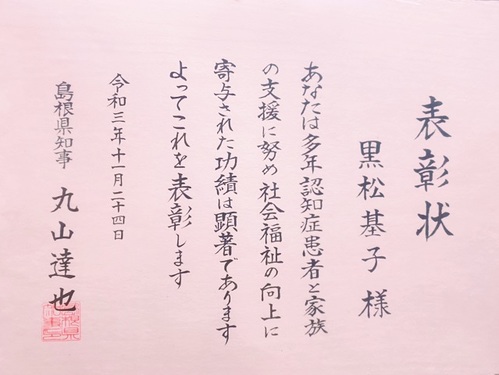 表彰状
黒松基子様
あなたは多年認知症患者と家族
の支援に努め社会福祉の向上に
寄与された功績は顕著であります
よってこれを表彰します
令和三年十一月二十四日
島根県知事 丸山達也